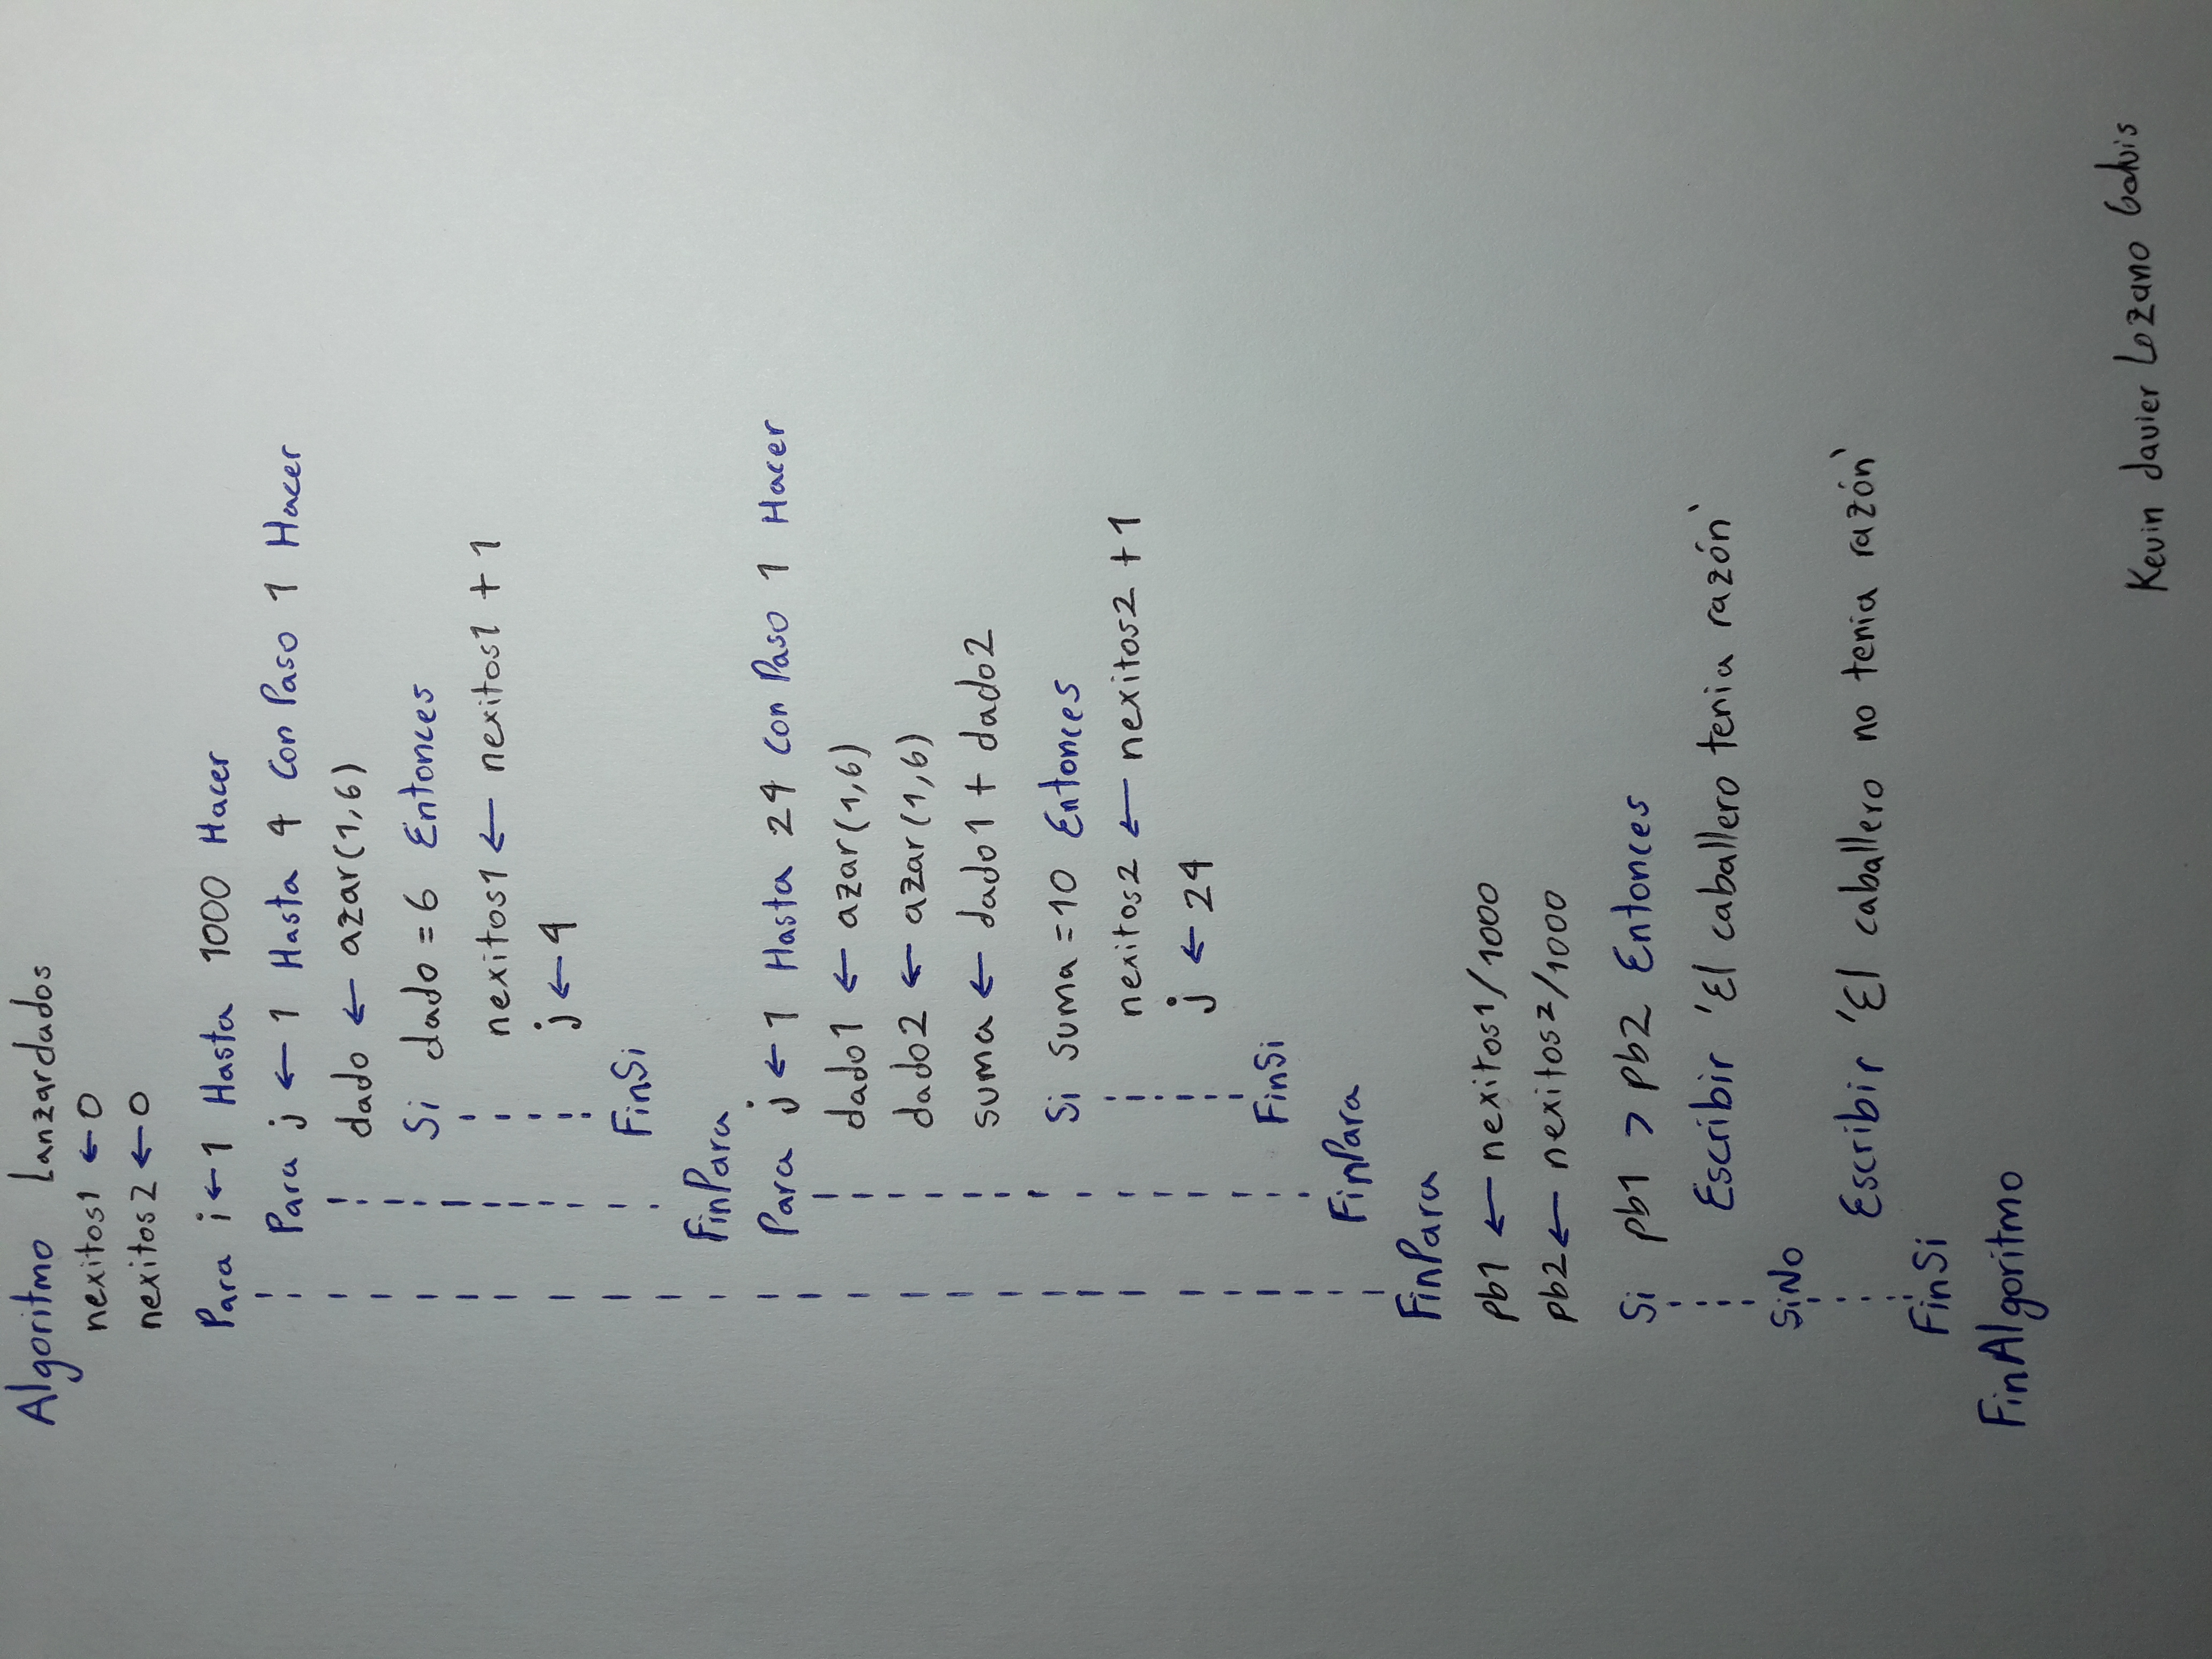 Algoritmo Lanzardados
nexitos1 ← 0
nexitos2 ← 0
Para i ← 1 Hasta 1000 Hacer
Para j ← 1 Hasta 4 Con Paso 1 Hacer
dado ← azar(1,6)
Si dado = 6 Entonces
nexitos1 ← nexitos1 + 1
j ← 4
FinSi
FinPara
Para j ← 1 Hasta 24 Con Paso 1 Hacer
dado1 ← azar(1,6)
dado2 ← azar(1,6)
suma ← dado1 + dado2
Si suma = 10 Entonces
nexitos2 ← nexitos2 + 1
j ← 24
FinSi
FinPara
FinPara
pb1 ← nexitos1/1000
pb2 ← nexitos2/1000
Si pb1 > pb2 Entonces
Escribir 'El caballero tenia razón'
SiNo
Escribir 'El caballero no tenia razón'
FinSi
FinAlgoritmo
Kevin Javier Lozano Galvis